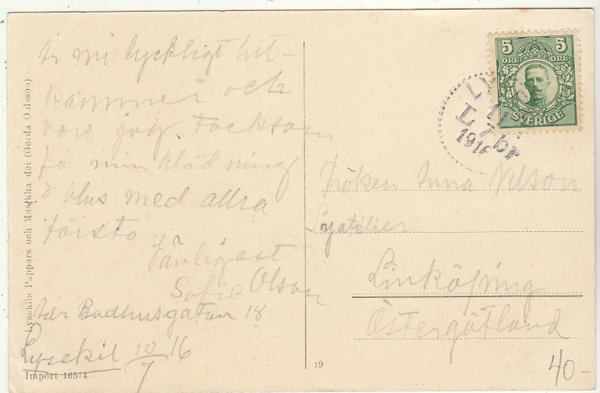 Är ni lyckligt hit-
kommer och
vore jag tacksam
få min klädning
o blus med allra
första
Vänligast
Sofie Olson
Adr Badhusgatan 18
Lysekil 10/7 16
Import 16574
Lysekils Pappers och Musikha del (Gerda Ohlsson)
19
5 5
ÖRE ÖRE
SVERIGE
1916
Fröken Anna Nelson
Syatélier
Linköping
Östergötland
40-